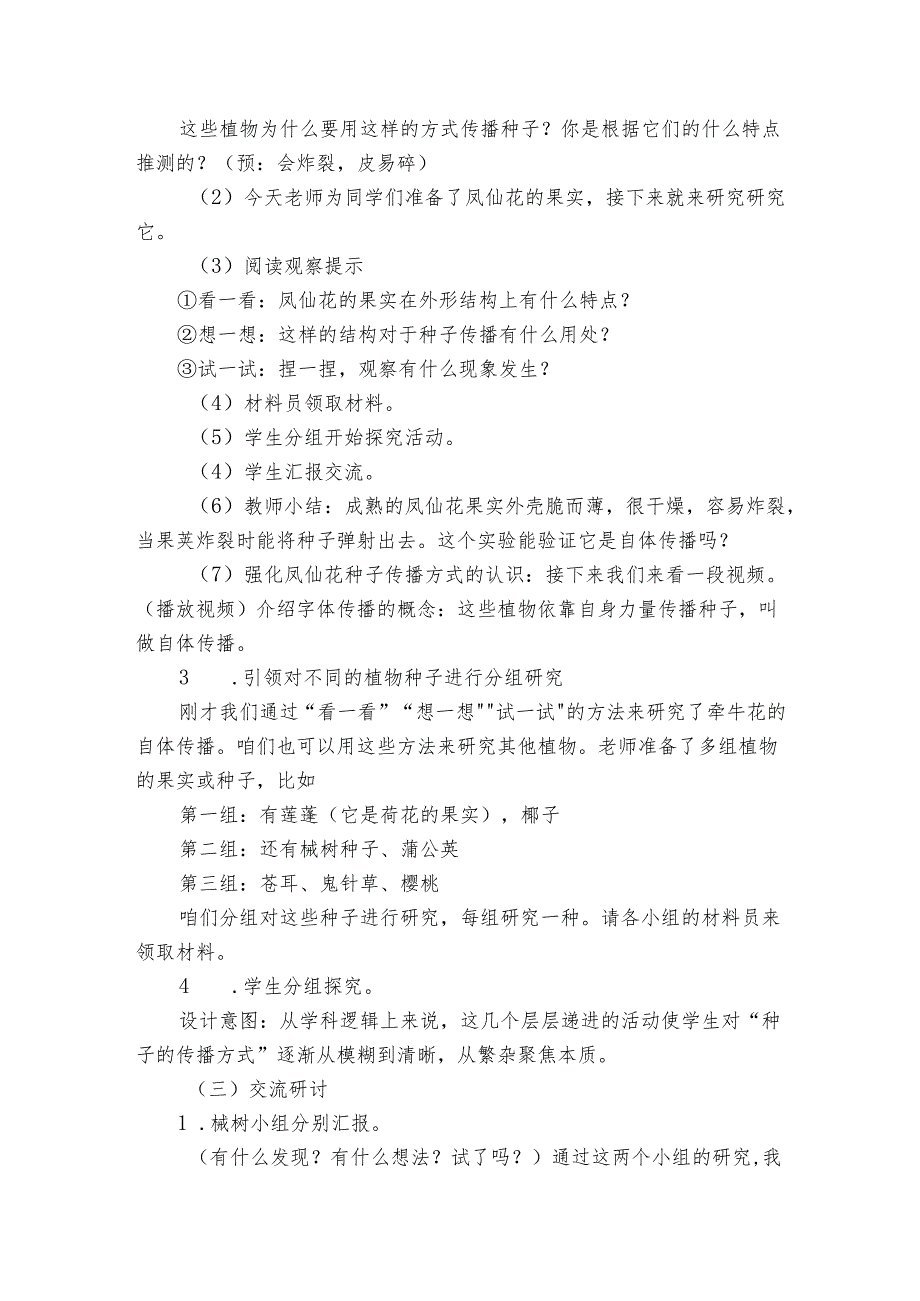 这些植物为什么要用这样的方式传播种子？你是根据它们的什么特点
推测的？（预：会炸裂，皮易碎）
（2）今天老师为同学们准备了凤仙花的果实，接下来就来研究研究
它。
（3）阅读观察提示
①看一看：凤仙花的果实在外形结构上有什么特点？
②想一想：这样的结构对于种子传播有什么用处？
③试一试：捏一捏，观察有什么现象发生？
（4）材料员领取材料。
（5）学生分组开始探究活动。
（4）学生汇报交流。
（6）教师小结：成熟的凤仙花果实外壳脆而薄，很干燥，容易炸裂，
当果荚炸裂时能将种子弹射出去。这个实验能验证它是自体传播吗？
（7）强化凤仙花种子传播方式的认识：接下来我们来看一段视频。
（播放视频）介绍字体传播的概念：这些植物依靠自身力量传播种子，叫
做自体传播。
3 .引领对不同的植物种子进行分组研究
刚才我们通过“看一看”“想一想""试一试"的方法来研究了牵牛花的
自体传播。咱们也可以用这些方法来研究其他植物。老师准备了多组植物
的果实或种子，比如
第一组：有莲蓬（它是荷花的果实），椰子
第二组：还有械树种子、蒲公英
第三组：苍耳、鬼针草、樱桃
咱们分组对这些种子进行研究，每组研究一种。请各小组的材料员来
领取材料。
4 .学生分组探究。
设计意图：从学科逻辑上来说，这几个层层递进的活动使学生对“种
子的传播方式”逐渐从模糊到清晰，从繁杂聚焦本质。
（三）交流研讨
1 .械树小组分别汇报。
（有什么发现？有什么想法？试了吗？）通过这两个小组的研究,我